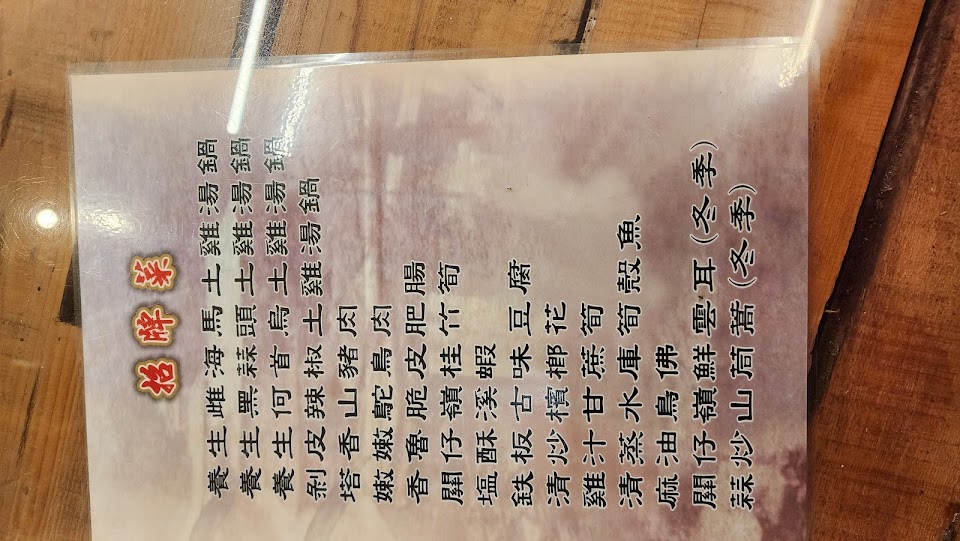 招牌菜
養生雌海馬土雞湯鍋
養生黑蒜頭土雞湯鍋
養生何首烏土雞湯鍋
剝皮辣椒土雞湯鍋
塔香山豬肉
嫩嫩鴕鳥肉
香魯脆皮肥腸
關仔嶺桂竹筍
塩酥溪蝦
鉄板古味豆腐
清炒檳榔花
雞汁甘蔗筍
清蒸水庫筍殼魚
麻油鳥佛
關仔嶺鮮雲耳(冬季)
蒜炒山茼蒿(冬季)